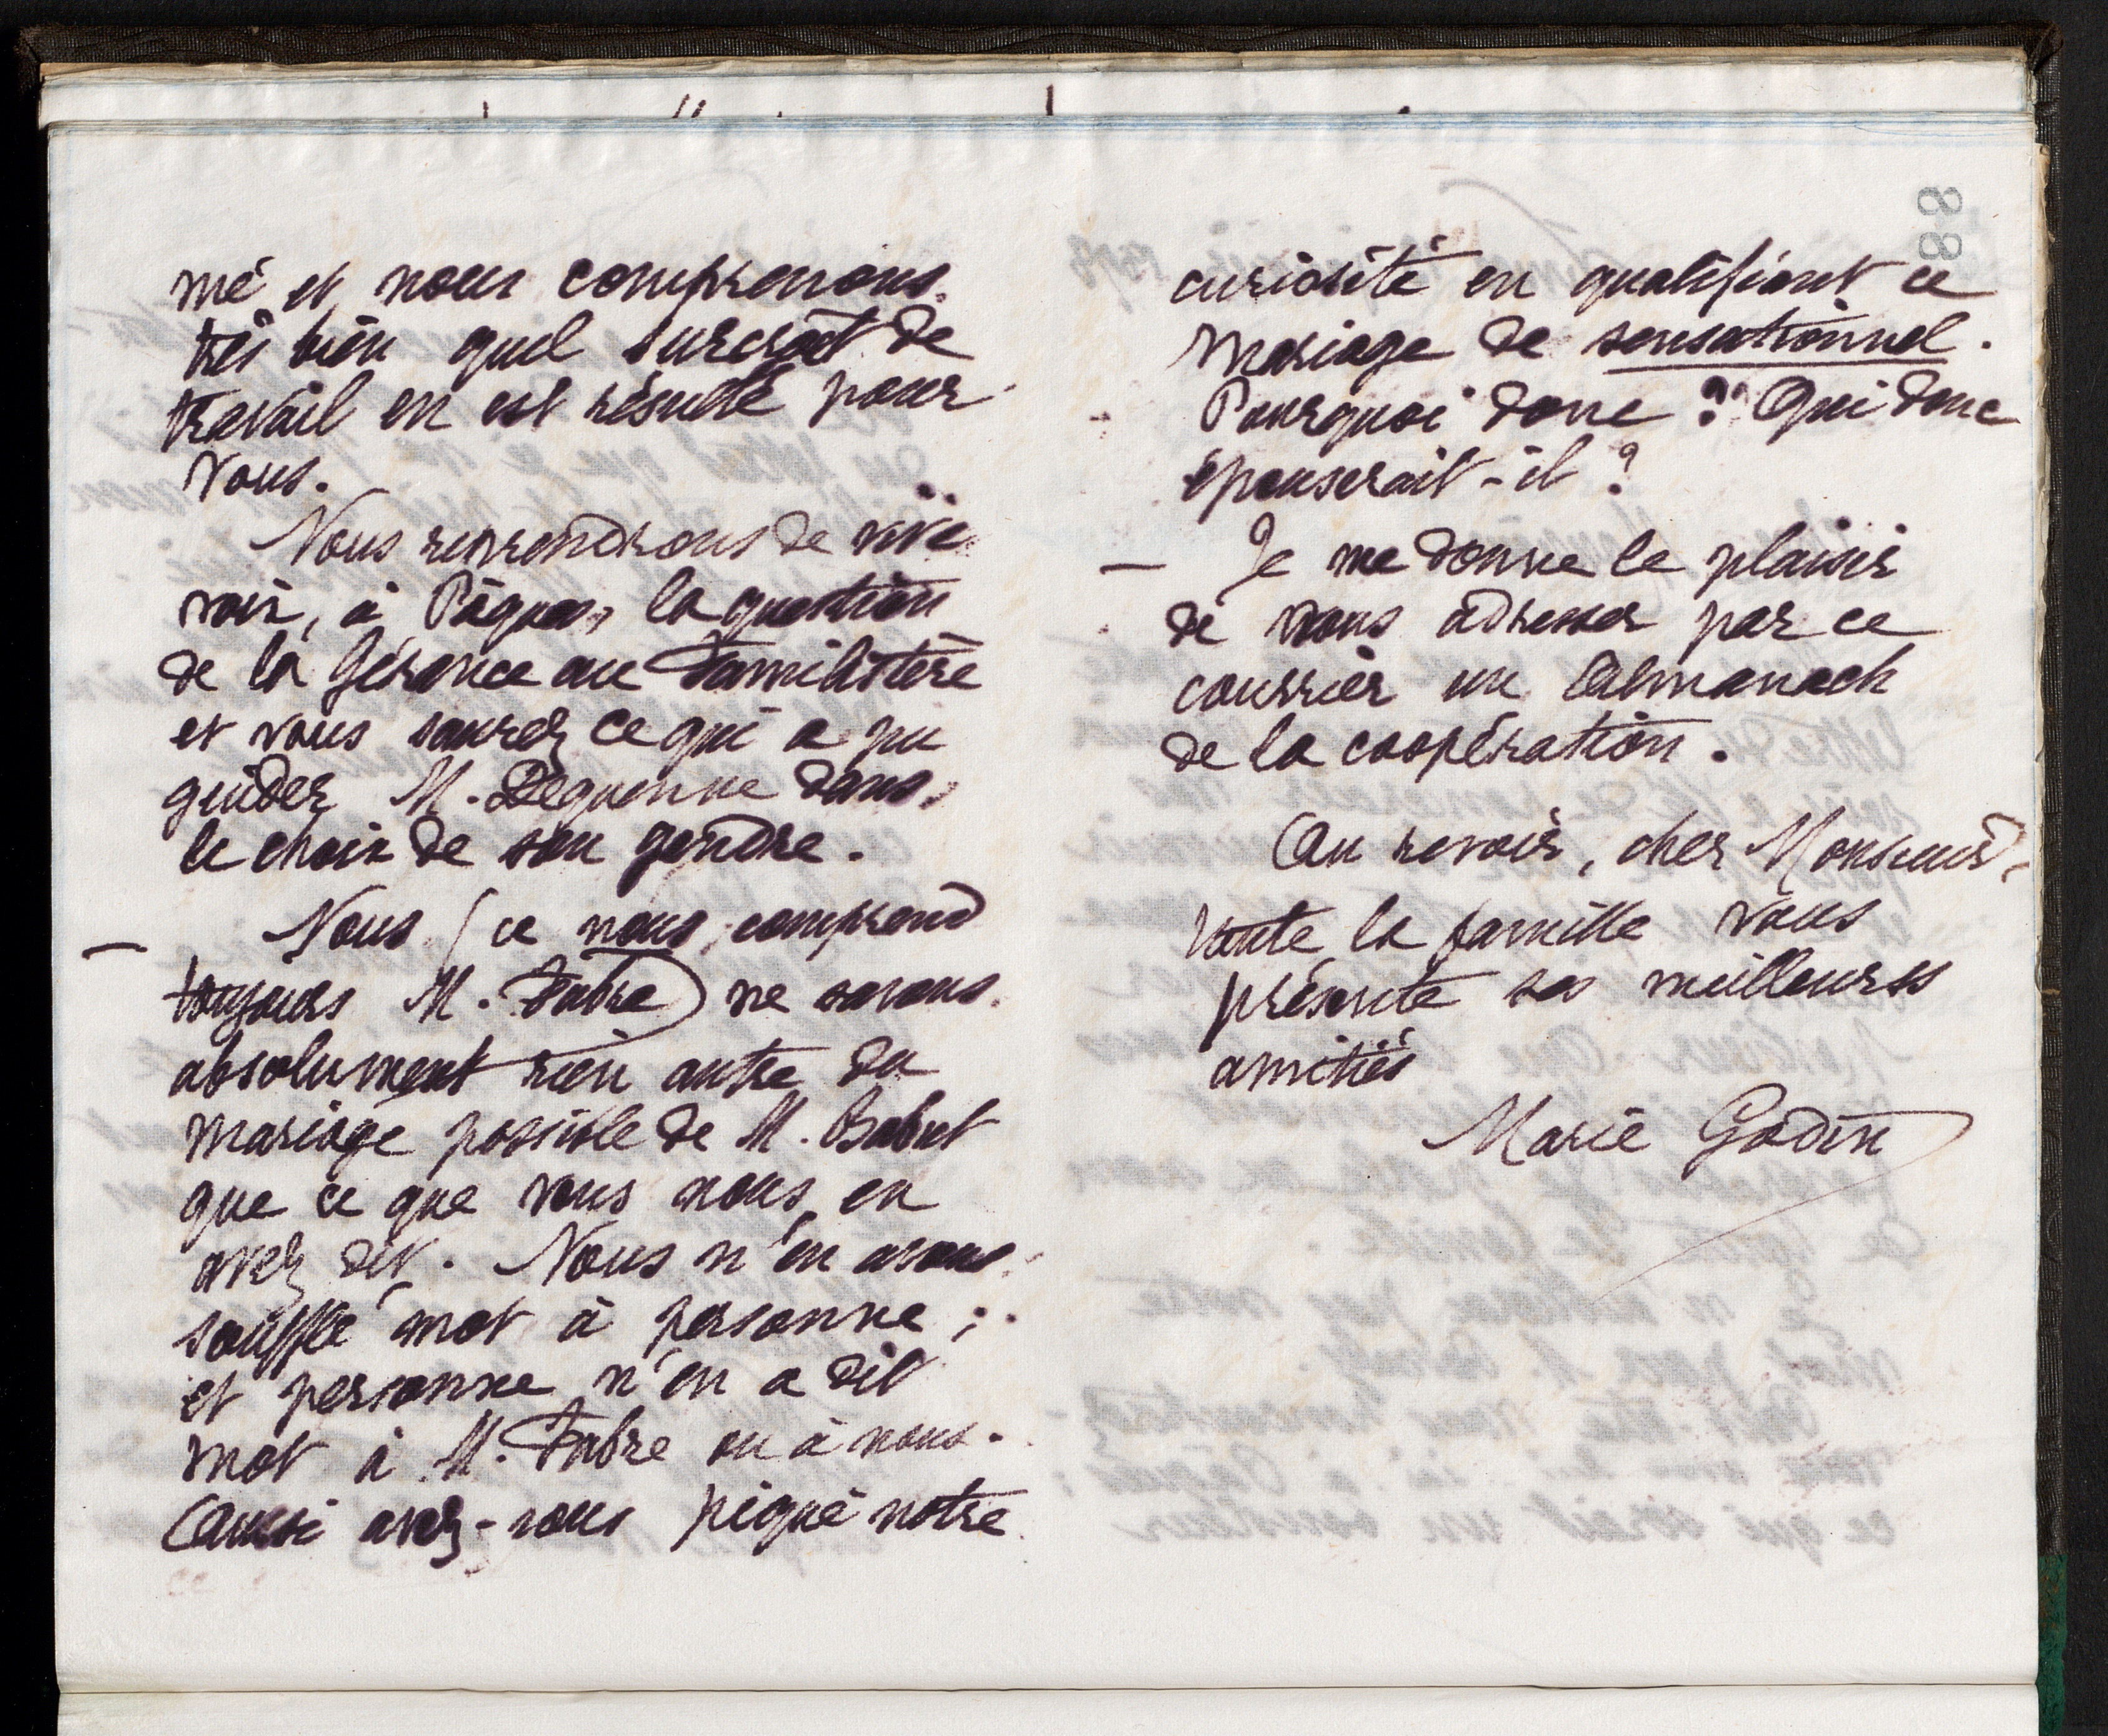 mé et nous comprenons
très bien quel surcroît de
travail en est résulté pour
vous.
Nous reprendrons de vive
voix, à Pâques, la question
de la Gérance au Familistère
et vous saurez ce qui a pu
guider M. Dequenne dans
le choix de son gendre.
— Nous (ce nous comprend
toujours M. Fabre) ne savons
absolument rien autre du
mariage possible de M. Babut
que ce que vous nous en
avez dit. Nous n'en avons
soufflé mot à personne ;
et personne n'en a dit
mot à M. Fabre ou à nous.
Aussi avez-vous piqué notre
88
curiosité en qualifiant ce
mariage de sensationnel.
Pourquoi donc ? Qui donc
épouserait-il ?
— Je me donne le plaisir
de vous adresser par ce
courrier un Almanach
de la coopération.
Au revoir, cher Monsieur,
toute la famille vous
présente ses meilleures
amitiés
Marie Godin